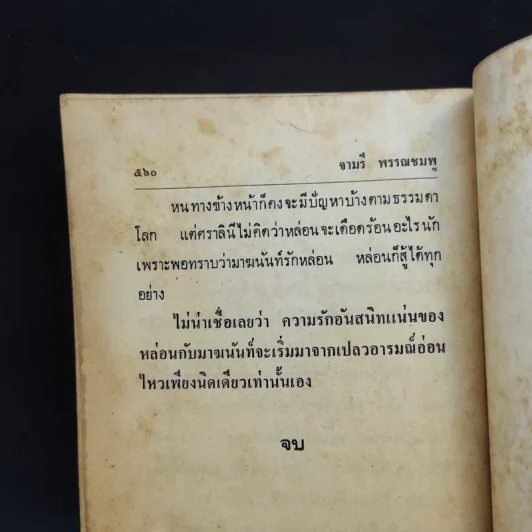 ๕๖๐ จามรี พรรณชมพู
หนทางข้างหน้าก็คงจะมีปัญหาบ้างตามธรรมดา
โลก แต่ศราลินีไม่คิดว่าหล่อนจะเดือดร้อนอะไรนัก
เพราะพอทราบว่ามาฆนันท์รักหล่อน หล่อนก็สู้ได้ทุก
อย่าง
ไม่น่าเชื่อเลยว่า ความรักอันสนิทแน่นของ
หล่อนกับมาฆนันท์จะเริ่มมาจากเปลวอารมณ์อ่อน
ไหวเพียงนิดเดียวเท่านั้นเอง
จบ